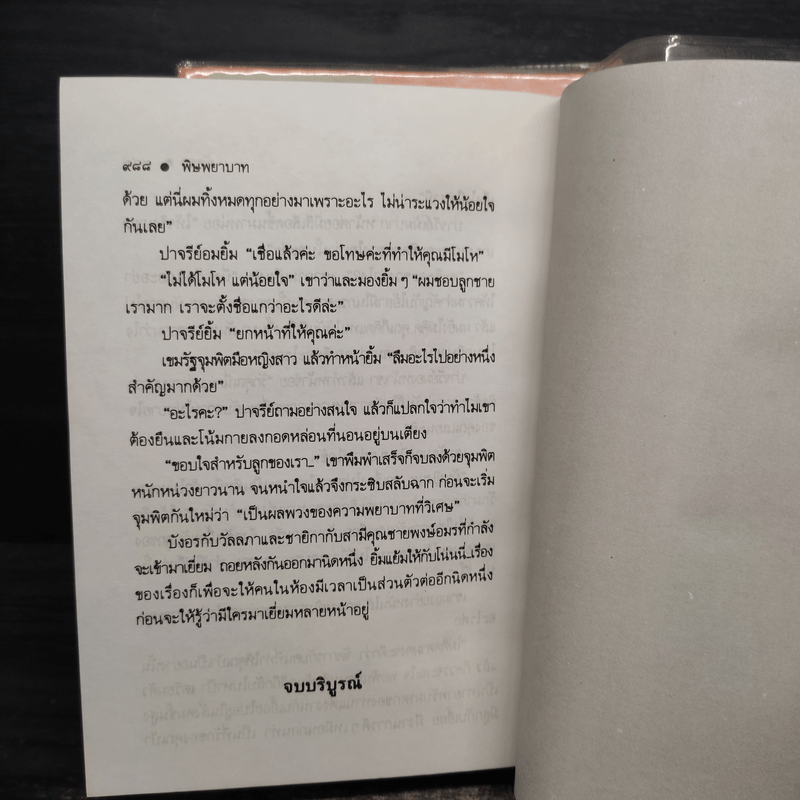 ๙๘๘ ● พิษพยาบาท
ด้วย แต่นี่ผมทิ้งหมดทุกอย่างมาเพราะอะไร ไม่น่าระแวงให้น้อยใจ
กันเลย”
ปาจรีย์อมยิ้ม “เชื่อแล้วค่ะ ขอโทษค่ะที่ทำให้คุณมีโมโห”
“ไม่ได้โมโห แต่น้อยใจ” เขาว่าและมองยิ้มๆ “ผมชอบลูกชาย
เรามาก เราจะตั้งชื่อแกว่าอะไรดีล่ะ”
ปาจรีย์ยิ้ม “ยกหน้าที่ให้คุณค่ะ”
เขมรัฐจุมพิตมือหญิงสาว แล้วทำหน้ายิ้ม “ลืมอะไรไปอย่างหนึ่ง
สำคัญมากด้วย”
“อะไรคะ?” ปาจรีย์ถามอย่างสนใจ แล้วก็แปลกใจว่าทำไมเขา
ต้องยืนและโน้มกายลงกอดหล่อนที่นอนอยู่บนเตียง
“ขอบใจสำหรับลูกของเรา...” เขาพึมพำเสร็จก็จบลงด้วยจุมพิต
หนักหน่วงยาวนาน จนหนำใจแล้วจึงกระซิบสลับฉาก ก่อนจะเริ่ม
จุมพิตกันใหม่ว่า “เป็นผลพวงของความพยาบาทที่วิเศษ”
บังอรกับวัลลภาและชายิกากับสามีคุณชายพงษ์อมรที่กำลัง
จะเข้ามาเยี่ยม ถอยหลังกันออกมานิดหนึ่ง ยิ้มแย้มให้กับโน่นนี่...เรื่อง
ของเรื่องก็เพื่อจะให้คนในห้องมีเวลาเป็นส่วนตัวต่ออีกนิดหนึ่ง
ก่อนจะให้รู้ว่ามีใครมาเยี่ยมหลายหน้าอยู่
จบบริบูรณ์